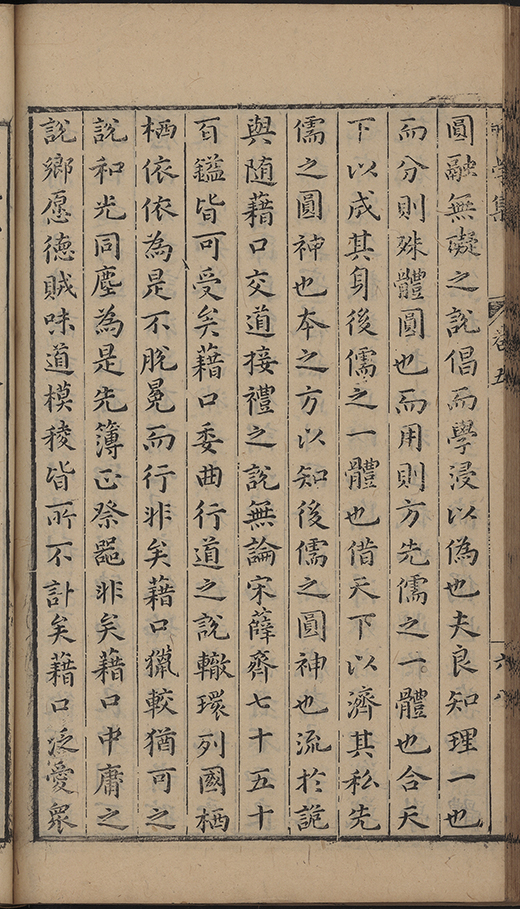 集 卷五 六八
圓融無礙之說倡而學浸以偽也夫良知理一也
而分則殊體圓也而用則方先儒之一體也合天
下以成其身後儒之一體也借天下以濟其私先
儒之圓神也本之方以知後儒之圓神也流於詭
與隨藉口交道接禮之說無論宋薛齊七十五十
百鎰皆可受矣藉口委曲行道之說轍環列國栖
栖依依為是不脫冕而行非矣藉口獵較猶可之
說和光同塵為是先簿正祭器非矣藉口中庸之
說鄉愿德賊味道模稜皆所不訃矣藉口泛愛衆